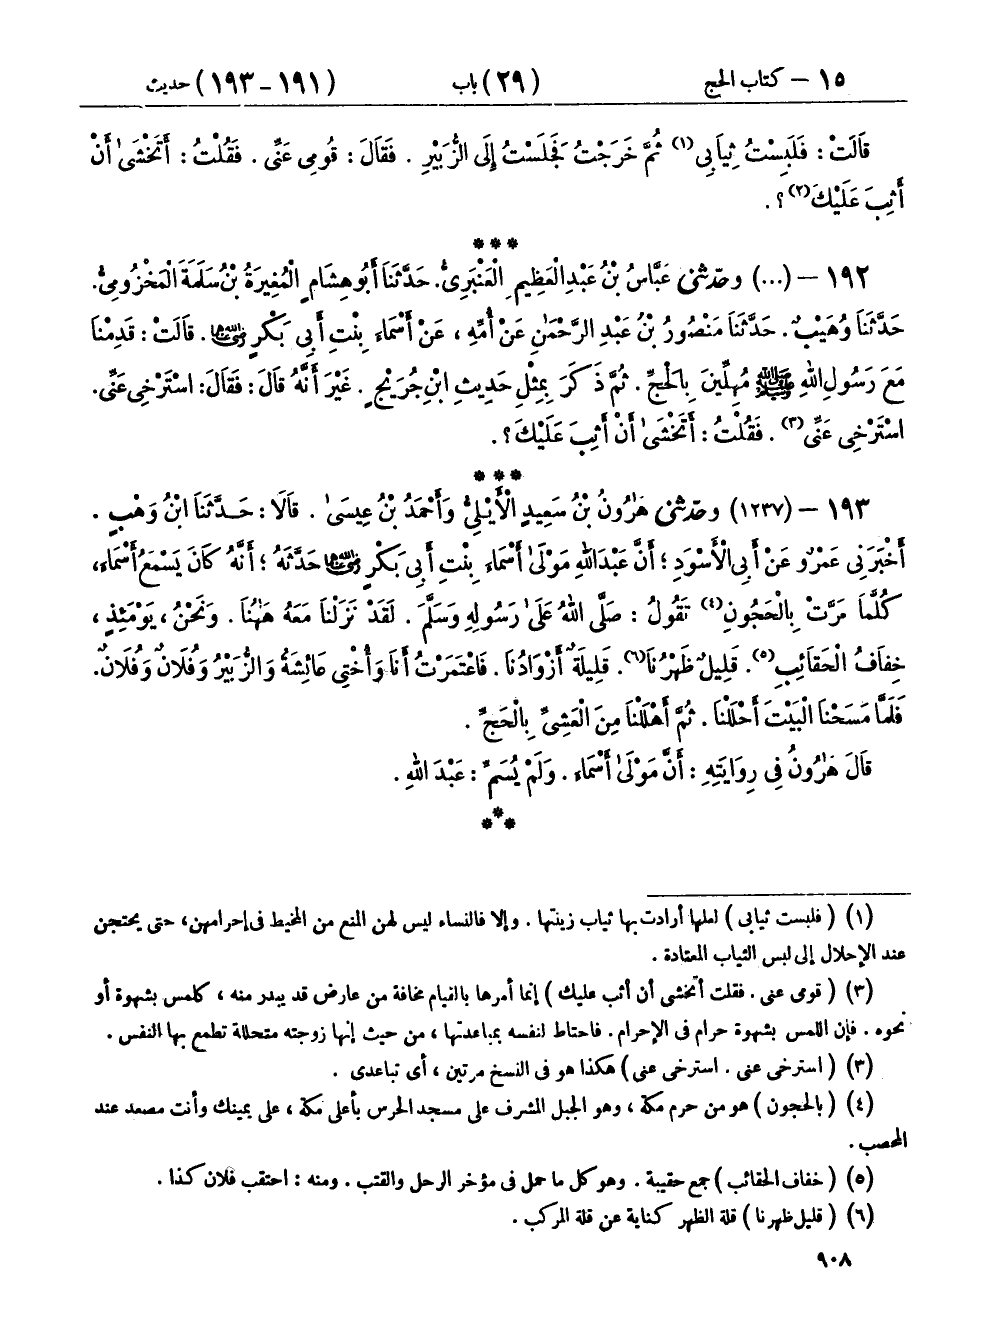 ١٥ – كتاب الحج (٢٩) باب (١٩١ – ١٩٣) حديث
قَالَتْ : فَلَبِسْتُ ثِيَابِى(١) ثُمَّ خَرَجْتُ فَجَلَسْتُ إِلَى الزُّبَيْرِ . فَقَالَ : قُومِى عَنِّى . فَقُلْتُ : أَتَخْشَىٰ أَنْ
أَثِبَ عَلَيْكَ(٢) ؟ .
***
١٩٢ – (...) وحدّثنى عَبَّاسُ بْنُ عَبْدِ الْعَظِيمِ الْعَنْبَرِىُّ. حَدَّثَنَا أَبُو هِشَامٍ الْمُغِيرَةُ بْنُ سَلَمَةَ الْمَخْزُومِىُّ.
حَدَّثَنَا وُهَيْبٌ. حَدَّثَنَا مَنْصُورُ بْنُ عَبْدِ الرَّحْمَٰنِ عَنْ أُمِّهِ ، عَنْ أَسْمَاءَ بِنْتِ أَبِى بَكْرٍ رضى الله عنهما . قَالَتْ : قَدِمْنَا
مَعَ رَسُولِ اللهِ ﷺ مُهِلِّينَ بِالْحَجِّ . ثُمَّ ذَكَرَ بِمِثْلِ حَدِيثِ ابْنِ جُرَيْجٍ . غَيْرَ أَنَّهُ قَالَ : فَقَالَ: اسْتَرْخِى عَنِّى.
اسْتَرْخِى عَنِّى(٣) . فَقُلْتُ : أَتَخْشَىٰ أَنْ أَثِبَ عَلَيْكَ ؟ .
***
١٩٣ – (١٢٣٧) وحدّثنى هَٰرُونُ بْنُ سَعِيدٍ الْأَيْلِىُّ وَأَحْمَدُ بْنُ عِيسَىٰ . قَالَا : حَدَّثَنَا ابْنُ وَهْبٍ .
أَخْبَرَنِى عَمْرٌو عَنْ أَبِى الْأَسْوَدِ ؛ أَنَّ عَبْدَ اللهِ مَوْلَىٰ أَسْمَاءَ بِنْتِ أَبِى بَكْرٍ رضى الله عنهما حَدَّثَهُ ؛ أَنَّهُ كَانَ يَسْمَعُ أَسْمَاءَ،
كُلَّمَا مَرَّتْ بِالْحَجُونِ(٤) تَقُولُ : صَلَّى اللهُ عَلَىٰ رَسُولِهِ وَسَلَّمَ . لَقَدْ نَزَلْنَا مَعَهُ هَٰهُنَا . وَنَحْنُ ، يَوْمَئِذٍ ،
خِفَافُ الْحَقَائِبِ(٥). قَلِيلٌ ظَهْرُنَا(٦). قَلِيلَةٌ أَزْوَادُنَا . فَاعْتَمَرْتُ أَنَا وَأُخْتِى عَائِشَةُ وَالزُّبَيْرُ وَفُلَانٌ وَفُلَانٌ.
فَلَمَّا مَسَحْنَا الْبَيْتَ أَحْلَلْنَا . ثُمَّ أَهْلَلْنَا مِنَ الْعَشِىِّ بِالْحَجِّ .
قَالَ هَٰرُونُ فِى رِوَايَتِهِ : أَنَّ مَوْلَىٰ أَسْمَاءَ . وَلَمْ يُسَمِّ : عَبْدَ اللهِ .
***
(١) ( فلبست ثيابى ) لعلها أرادت بها ثياب زينتها . وإلا فالنساء ليس لهن المنع من المخيط فى إحرامهن، حتى يحتجن
عند الإحلال إلى لبس الثياب المعتادة .
(٣) ( قومى عنى . فقلت أتخشى أن أثب عليك ) إنما أمرها بالقيام مخافة من عارض قد يبدر منه ، كلمس بشهوة أو
نحوه . فإن اللمس بشهوة حرام فى الإحرام . فاحتاط لنفسه بمباعدتها ، من حيث إنها زوجته متحللة تطمع بها النفس .
(٣) ( استرخى عنى . استرخى عنى ) هكذا هو فى النسخ مرتين ، أى تباعدى .
(٤) ( بالحجون ) هو من حرم مكة ، وهو الجبل المشرف على مسجد الحرس بأعلى مكة ، على يمينك وأنت مصعد عند
المحصب .
(٥) ( خفاف الحقائب ) جمع حقيبة . وهو كل ما حمل فى مؤخر الرحل والقتب . ومنه : احتقب فلان كذا .
(٦) ( قليل ظهرنا ) قلة الظهر كناية عن قلة المركب .
٩٠٨